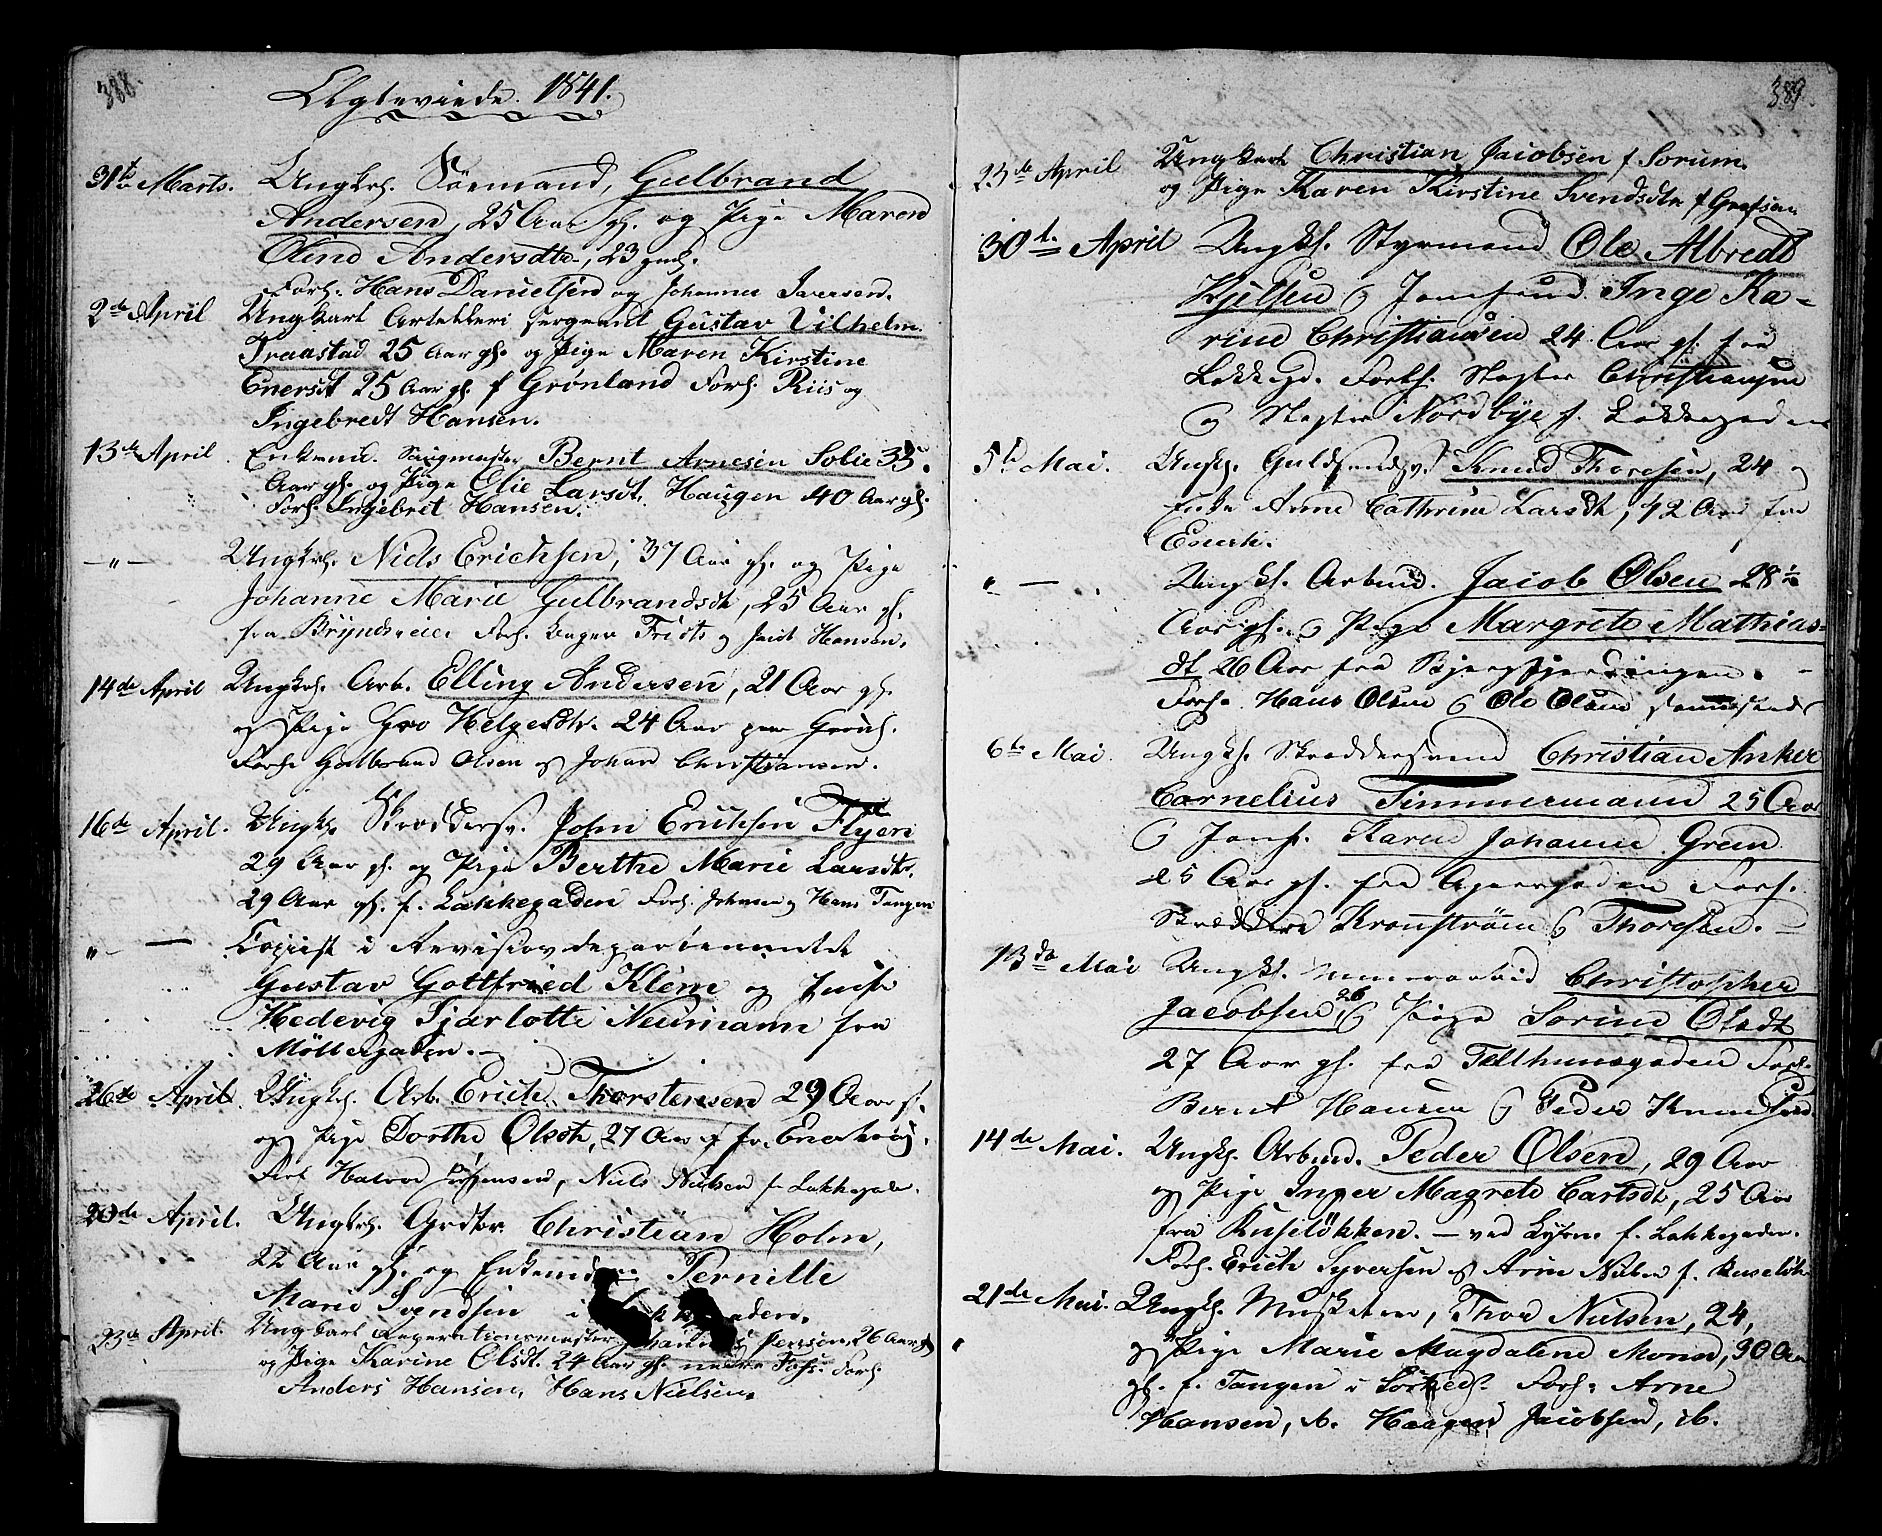 388.
Ægteviede. 1841.
31te Marts. Ungkrl. Sömand, Gulbrand
Andersen, 25 Aar gl. og Pige Maren
Oline Andersdtr, 23 gml.
Forl. Hans Danielsen og Johannes Iversen.
2de April Ungkarl Artelleri sergeant Gustav Vilhelm
Traastad 25 Aar gl. og Pige Maren Kirstine
Enersdt 25 Aar gl. f Grønland Forl. Riis og
Ingebredt Hansen.
13de April Enkemd. Bernt Arnesen Solie 35
Aar gl. og Pige Elie Larsdt. Haugen 40 Aar gl.
Forl. Ingebret Hansen.
—"— Ungkrl. Niels Erichsen, 37 Aar gl. og Pige
Johanne Marie Gulbrandsdt, 25 Aar gl.
fra Forl. og Hansen.
14de April Ungkrl. Arb. Elling Andersen, 21 Aar gl.
og Pige Gro Helgesdtr. 24 Aar
Forl. Gulbrand Olsen og Johan Christiansen.
16de April. Ungkrl. Skræddersv. John Erichsen Flyen
29 Aar gl. og Pige Berthe Marie Larsdtr.
29 Aar gl. f. Lakkegaden Forl. Johnsen og Hans Tangen
" — Copiist i Revisions departementet
Gustav Gottfried Klem og Enke
Hedevig Sjarlotte Neumann fra
Möllergaden. —
26de April Ungkrl. Arb. Erich Thorstensen 29 Aar gl.
og Pige Dorthe Olsdtr, 27 Aar gl fr. Enerhoug.
Forl Halvor Jörgensen, Niels Nielsen fr Lakkegade.
20de April. Ungkrl. Christian Holm,
22 Aar gl. og Enkemdn Pernille
Marie Svendsen i
23de April. Ungkarl Johannes Jensen, 26 Aar gl
og Pige Karine Olsdt. 24 Aar gl. Forl
Anders Hansen, Hans Nielsen.
389.
23de April Ungkarl Christian Jacobsen f Sorum
og Pige Karen Kirstine Svendsdtr f Grefsen
30te April Ungkl. Styrmand Ole Albredt
Kjelsen og Jomfrue Inge Ka-
rine Christiansen 24 Aar gl. fra
Lakkegd. Forl. Slagter Christiansen
og Slagter Nordbye f. Lakkegaden
5te Mai. Ungkl. Guldsmedsv. Knud Thoresen, 24 og
Enke Anne Cathrine Larsdt, 42 Aar fra
Enerh.
" — Ungkl. Arbmd. Jacob Olsen 28½
Aar gl. og Pige Margrete Mathias-
dt 26 Aar fra Bjergfjerdingen. —
Forl. Hans Olsen og Ole Olsen
6te Mai. Ungkl. Skræddersvend Christian Anker
Cornelius Timmermann 25 Aar
og Jomf. Karen Johanne Grein
25 Aar gl. fra Agersgaden Forl.
Skræddere Kronström og Thoresen. —
13de Mai Ungkl. Christopher
Jacobsen, 26 og Pige Sorine Olsdt
27 Aar gl. fra Telthuusgaden Forl.
Bernt Hansen og Peder Knudsen
14de Mai. Ungkl. Arbmd. Peder Olsen, 29 Aar
og Pige Inger Magrete Carlsdt, 25 Aar
fra Ruselökken. — ved f. Lakkegaden.
Forl. Erich Syversen og Arne Nielsen f. Ruselök
21de Mai. Ungkl. Musketeer, Thor Nielsen, 24,
og Pige Marie Magdalene Monsd, 30 Aar
gl. f. Tangen i Forl. Arne
Hansen, ib. Haagen Jacobsen, ib.